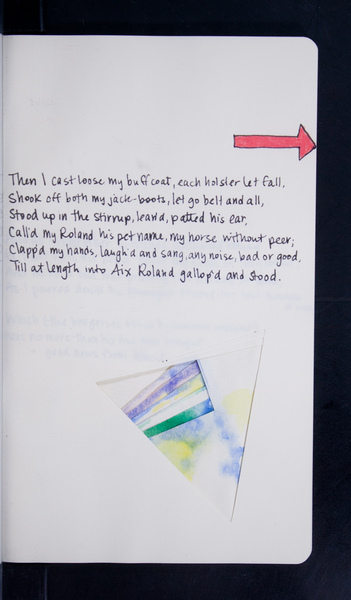 Then I cast loose my buffcoat, each holster let fall,
Shook off both my jack-boots, let go belt and all,
Stood up in the stirrup, lean'd, patted his ear,
Call'd my Roland his pet name, my horse without peer;
Clapp'd my hands, laugh'd and sang, any noise, bad or good,
'Till at length into Aix Roland gallop'd and stood.